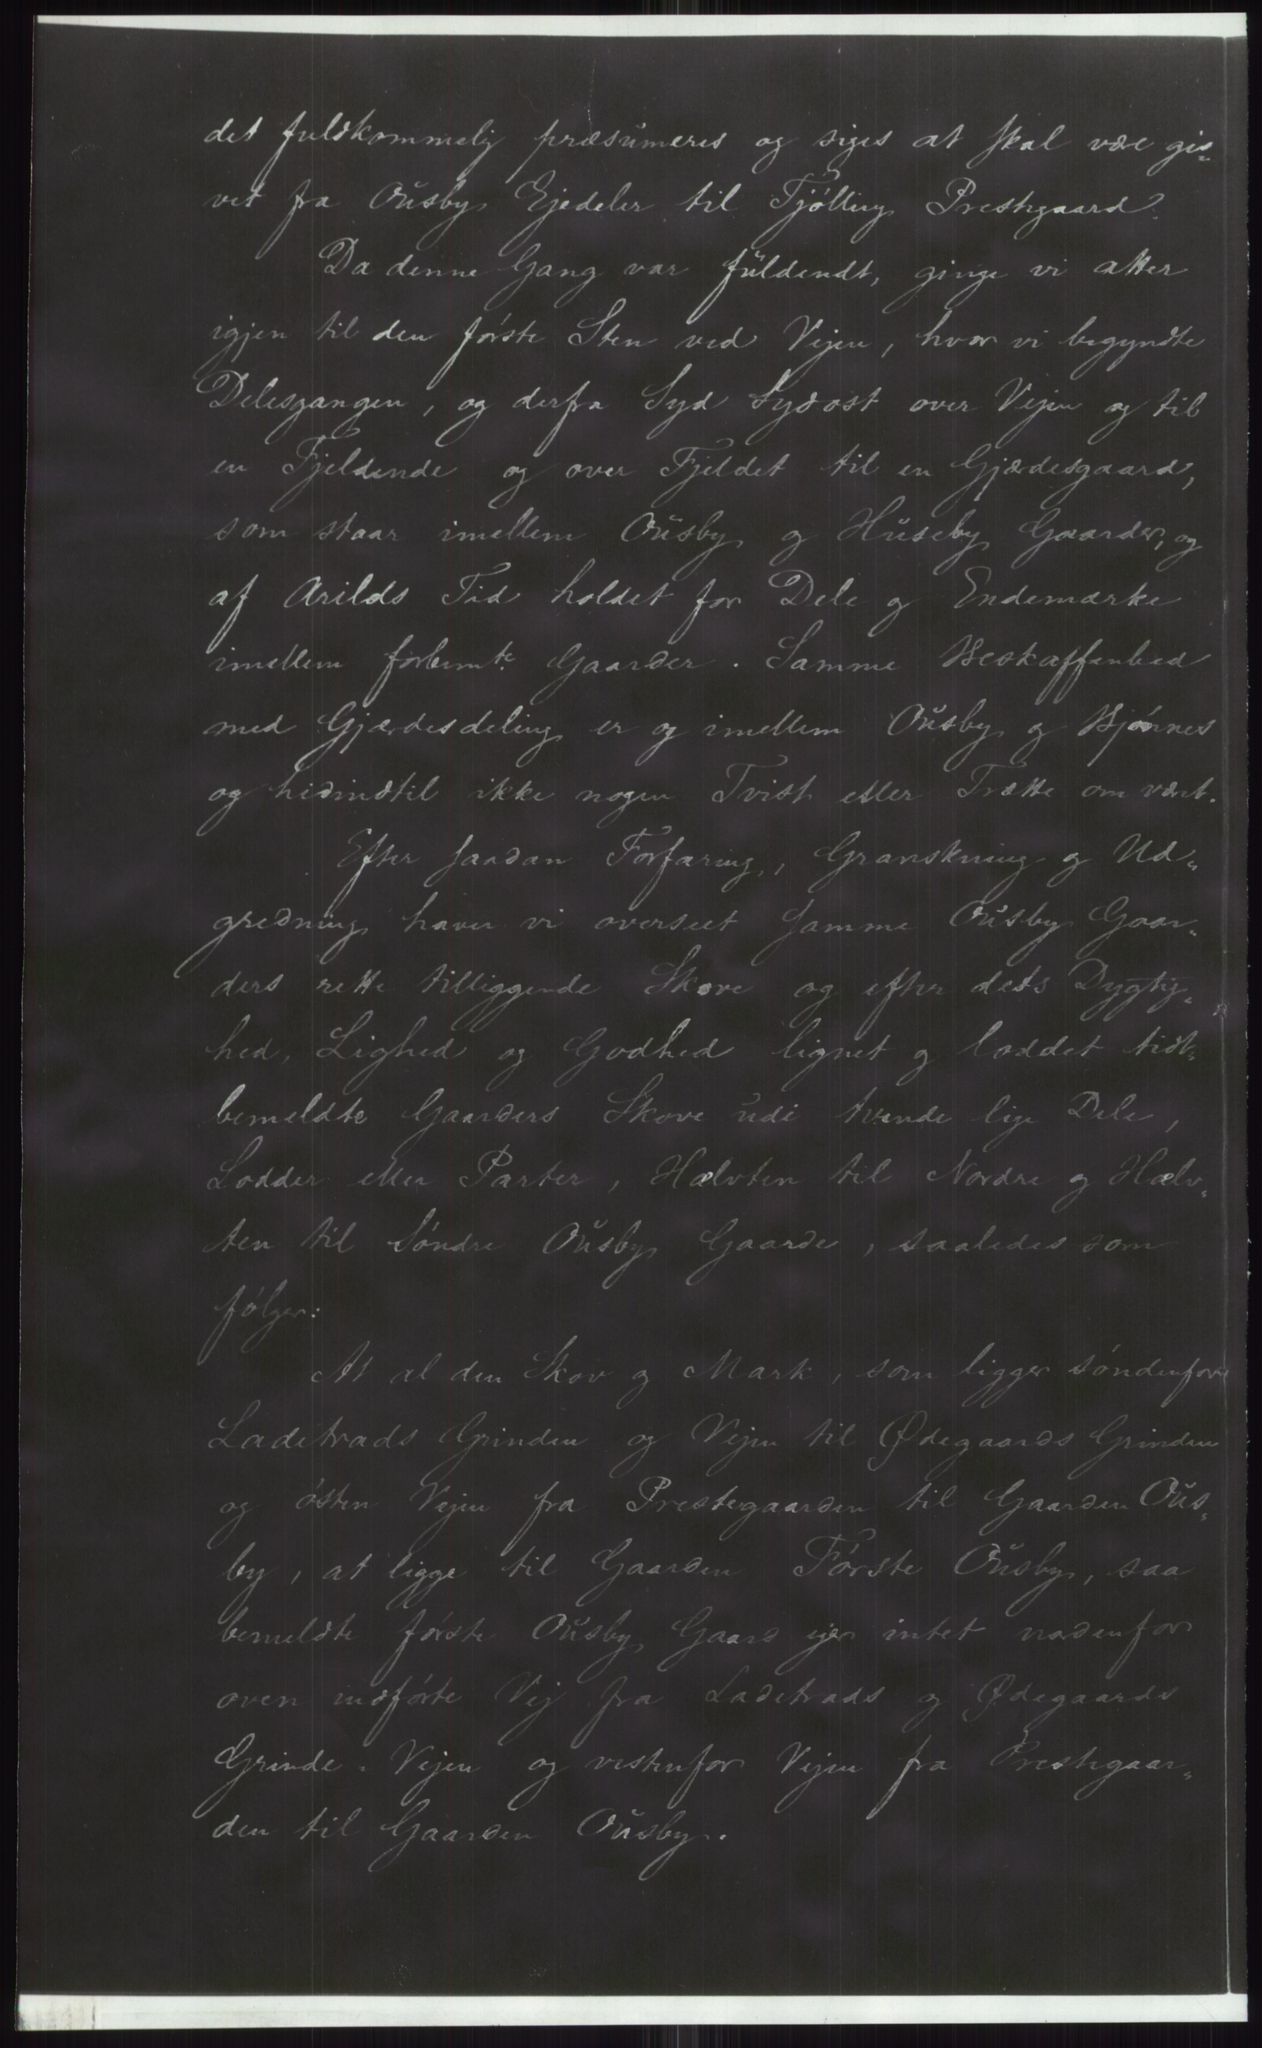 det fuldkommelig præsumeres og siges at skal være gi¬
vet fra Ousby Ejedeler til Tjølling Prestegaard.
Da denne Gang var fuldendt, ginge vi atter
igjen til den første Sten ved Vejen, hvor vi begyndte
Delesgangen, og derfra Syd Sydost over Vejen og til
en Fjeldende og over Fjeldet til en Gjærdesgaard,
som staar imellem Ousby og Huseby Gaarder, og
af Arilds Tid holdet for Dele og Endemærke
imellem forbemte Gaarder. Samme Beskaffenhed
med Gjærdesdeling er og imellem Ousby og Bjønnes
og hidindtil ikke nogen Tvist eller Trætte om været.
Efter saadan Forfaring, Granskning og Ud¬
gredning haver vi overseet samme Ousby Gaar¬
ders rette tilliggende Skove og efter dets Dygtig¬
hed, Lighed og Godhed lignet og loddet tidt¬
bemeldte Gaarders Skove udi tvende lige Dele,
Lodder eller Parter, Halvten til Nordre og Halv¬
ten til Søndre Ousby Gaarde, saaledes som
følger:
At al den Skov og Mark, som ligger søndenfore
Ladetrads Grinden og Vejen til Ødegaards Grinden
og østen Vejen fra Prestegaarden til Gaarden Ous¬
by, at ligge til Gaarden Første Ousby, saa
bemeldte første Ousby Gaard ejer intet nordenfor
oven indførte Vej fra Ladetrads og Ødegaards
Grinde-Vejen og vestenfor Vejen fra Prestegaar¬
den til Gaarden Ousby.